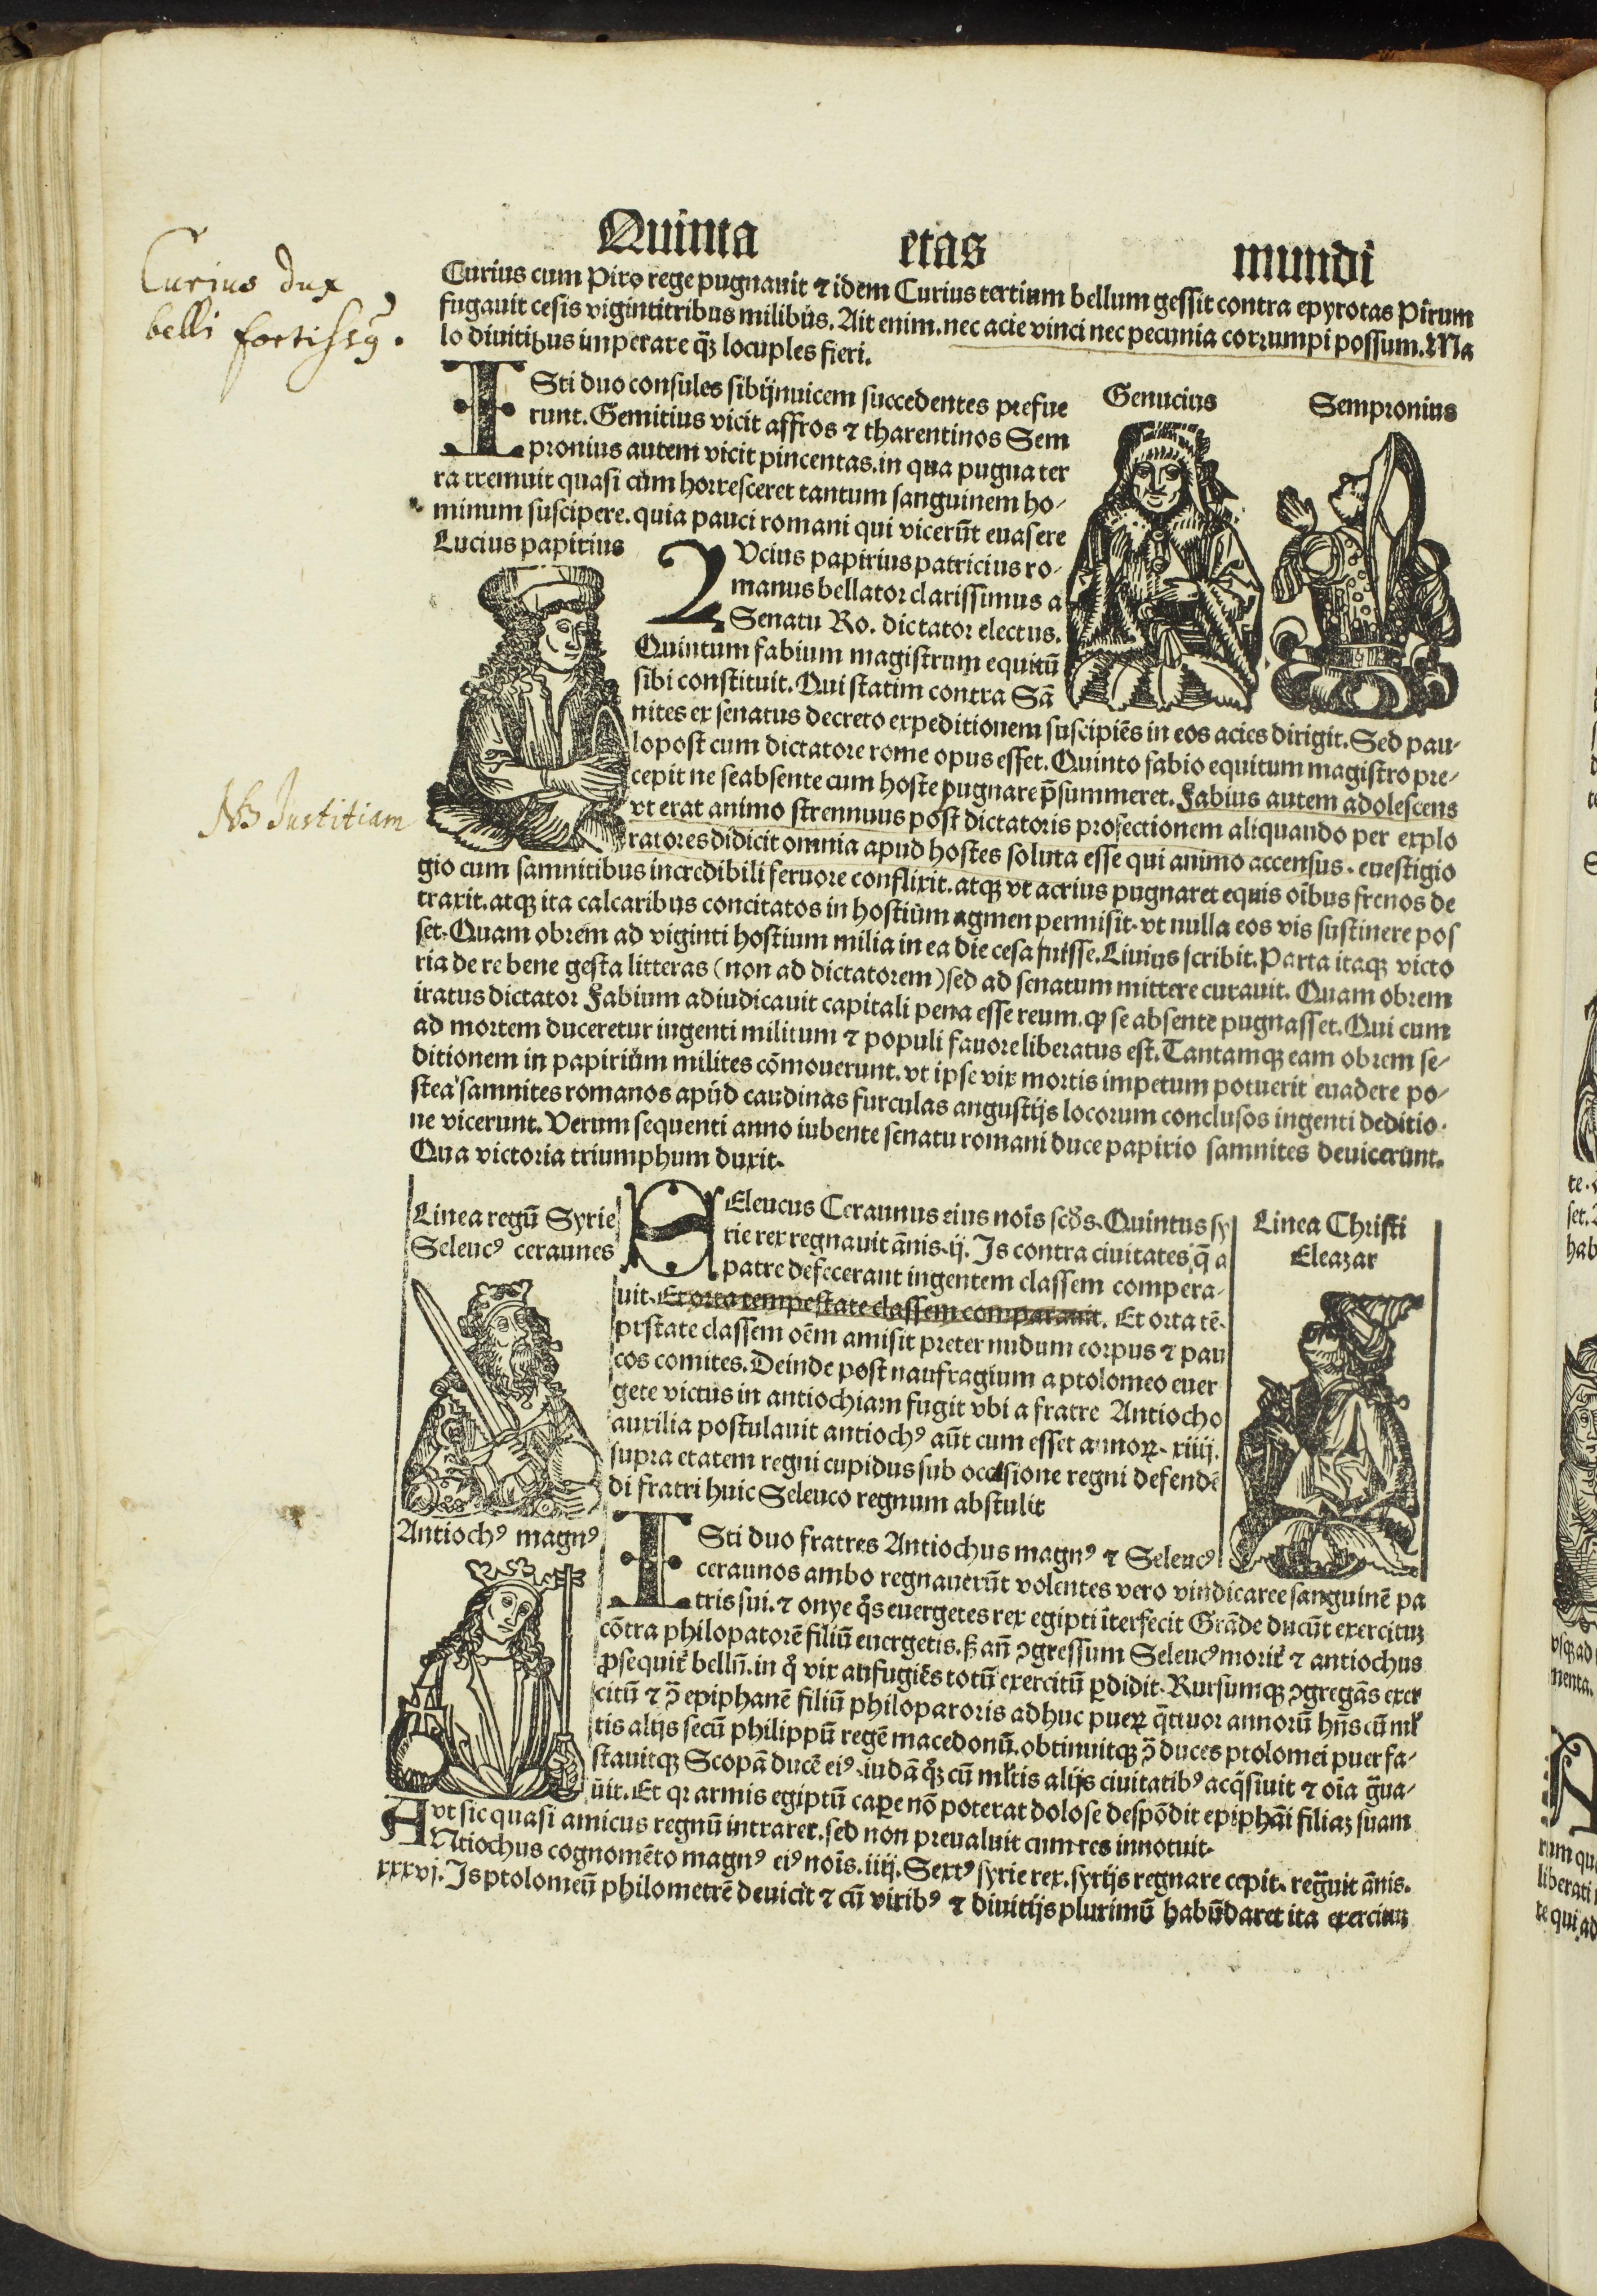 Quinta etas mundi
Curius dux
belli fortissꝰ.
Curius cum Piro rege pugnauit ⁊ idem Curius tertium bellum gessit contra epyrotas Pirum
fugauit cesis vigintitribus milibus. Ait enim. nec acie vinci nec pecunia corrumpi possum. Ma
lo diuitibus imperare q̄ꝫ locuples fieri.
Genucius Sempronius
ISti duo consules sibijnuicem succedentes prefue
runt. Gemitius vicit affros ⁊ tharentinos Sem
pronius autem vicit pincentas. in qua pugna ter
ra tremuit quasi cum horresceret tantum sanguinem ho-
minum suscipere. quia pauci romani qui vicerūt euasere
Lucius papirius
LVcius papirius patricius ro-
manus bellator clarissimus a
Senatu Ro. dictator electus.
Quintum fabium magistrum equitū
sibi constituit. Qui statim contra Sā
nites ex senatus decreto expeditionem suscipiēs in eos acies dirigit. Sed pau-
lopost cum dictatore rome opus esset. Quinto fabio equitum magistro pre-
cepit ne seabsente cum hoste pugnare p̄summeret. Fabius autem adolescens
NB Justitiam
vt erat animo strennuus post dictatoris profectionem aliquando per explo
ratores didicit omnia apud hostes soluta esse qui animo accensus. euestigio
gio cum samnitibus incredibili feruore conflixit. atqꝫ vt acrius pugnaret equis oībus frenos de
traxit. atqꝫ ita calcaribus concitatos in hostium agmen permisit. vt nulla eos vis sustinere pos
set. Quam obrem ad viginti hostium milia in ea die cesa fuisse. Liuius scribit. Parta itaqꝫ victo
ria de re bene gesta litteras (non ad dictatorem) sed ad senatum mittere curauit. Quam obrem
iratus dictator Fabium adiudicauit capitali pena esse reum. ꝙ se absente pugnasset. Qui cum
ad mortem duceretur ingenti militum ⁊ populi fauore liberatus est. Tantamqꝫ eam obrem se-
ditionem in papirium milites cōmouerunt. vt ipse vix mortis impetum potuerit euadere po-
stea samnites romanos apud caudinas furculas angustijs locorum conclusos ingenti deditio-
ne vicerunt. Verum sequenti anno iubente senatu romani duce papirio samnites deuicerunt.
Qua victoria triumphum duxit.
Linea regū Syrie
Seleucꝰ ceraunes
SEleucus Ceraunus eius noīs scds. Quintus sy
rie rex regnauit ānis. ij. Is contra ciuitates q̄ a
patre defecerant ingentem classem compera-
uit. Et orta tempestate classem comparauit. Et orta tē-
pestate classem oēm amisit preter nudum corpus ⁊ pau
cos comites. Deinde post naufragium a ptolomeo euer
gete victus in antiochiam fugit vbi a fratre Antiocho
auxilia postulauit antiochꝰ aūt cum esset annoꝝ. xiiij.
supra etatem regni cupidus sub occasione regni defendē
di fratri huic Seleuco regnum abstulit
Linea Christi
Eleazar
Antiochꝰ magnꝰ
ISti duo fratres Antiochus magnꝰ ⁊ Seleucꝰ
ceraunos ambo regnauerūt volentes vero vindicaree sanguinē pa
tris sui. ⁊ onye q̄s euergetes rex egipti īterfecit Grāde ducūt exercituꝫ
cōtra philopatorē filiū euergetis. ß an̄ ꝯgressum Seleucꝰ morit̄ ⁊ antiochus
ꝓsequit̄ bellū. in q̊ vix aufugiēs totū exercitū ꝑdidit. Rursumqꝫ ꝯgregās exer
citū ⁊ ꝯ̄ epiphanē filiū philopatoris adhuc pueꝝ q̄tuor annorū hn̄s cū ml̄
tis alijs secū philippū regē macedonū. obtinuitqꝫ ꝯ̄ duces ptolomei puer fa-
stauitqꝫ Scopā ducē eiꝰ. iudā q̊ꝫ cū ml̄tis alijs ciuitatibꝰ acq̄siuit ⁊ oīa g̃ua-
uit. Et qꝛ armis egiptū caꝑe nō poterat dolose despōdit epiphāi filiaꝫ suam
vt sic quasi amicus regnū intraret. sed non preualuit cum res innotuit.
ANtiochus cognomēto magnꝰ eiꝰ noīs. iiij. Sextꝰ syrie rex. syrijs regnare cepit. reg̃uit ānis.
xxxvj. Is ptolomeū philometrē deuicit ⁊ cū viribꝰ ⁊ diuitijs plurimū habūdaret ita exercituꝫ